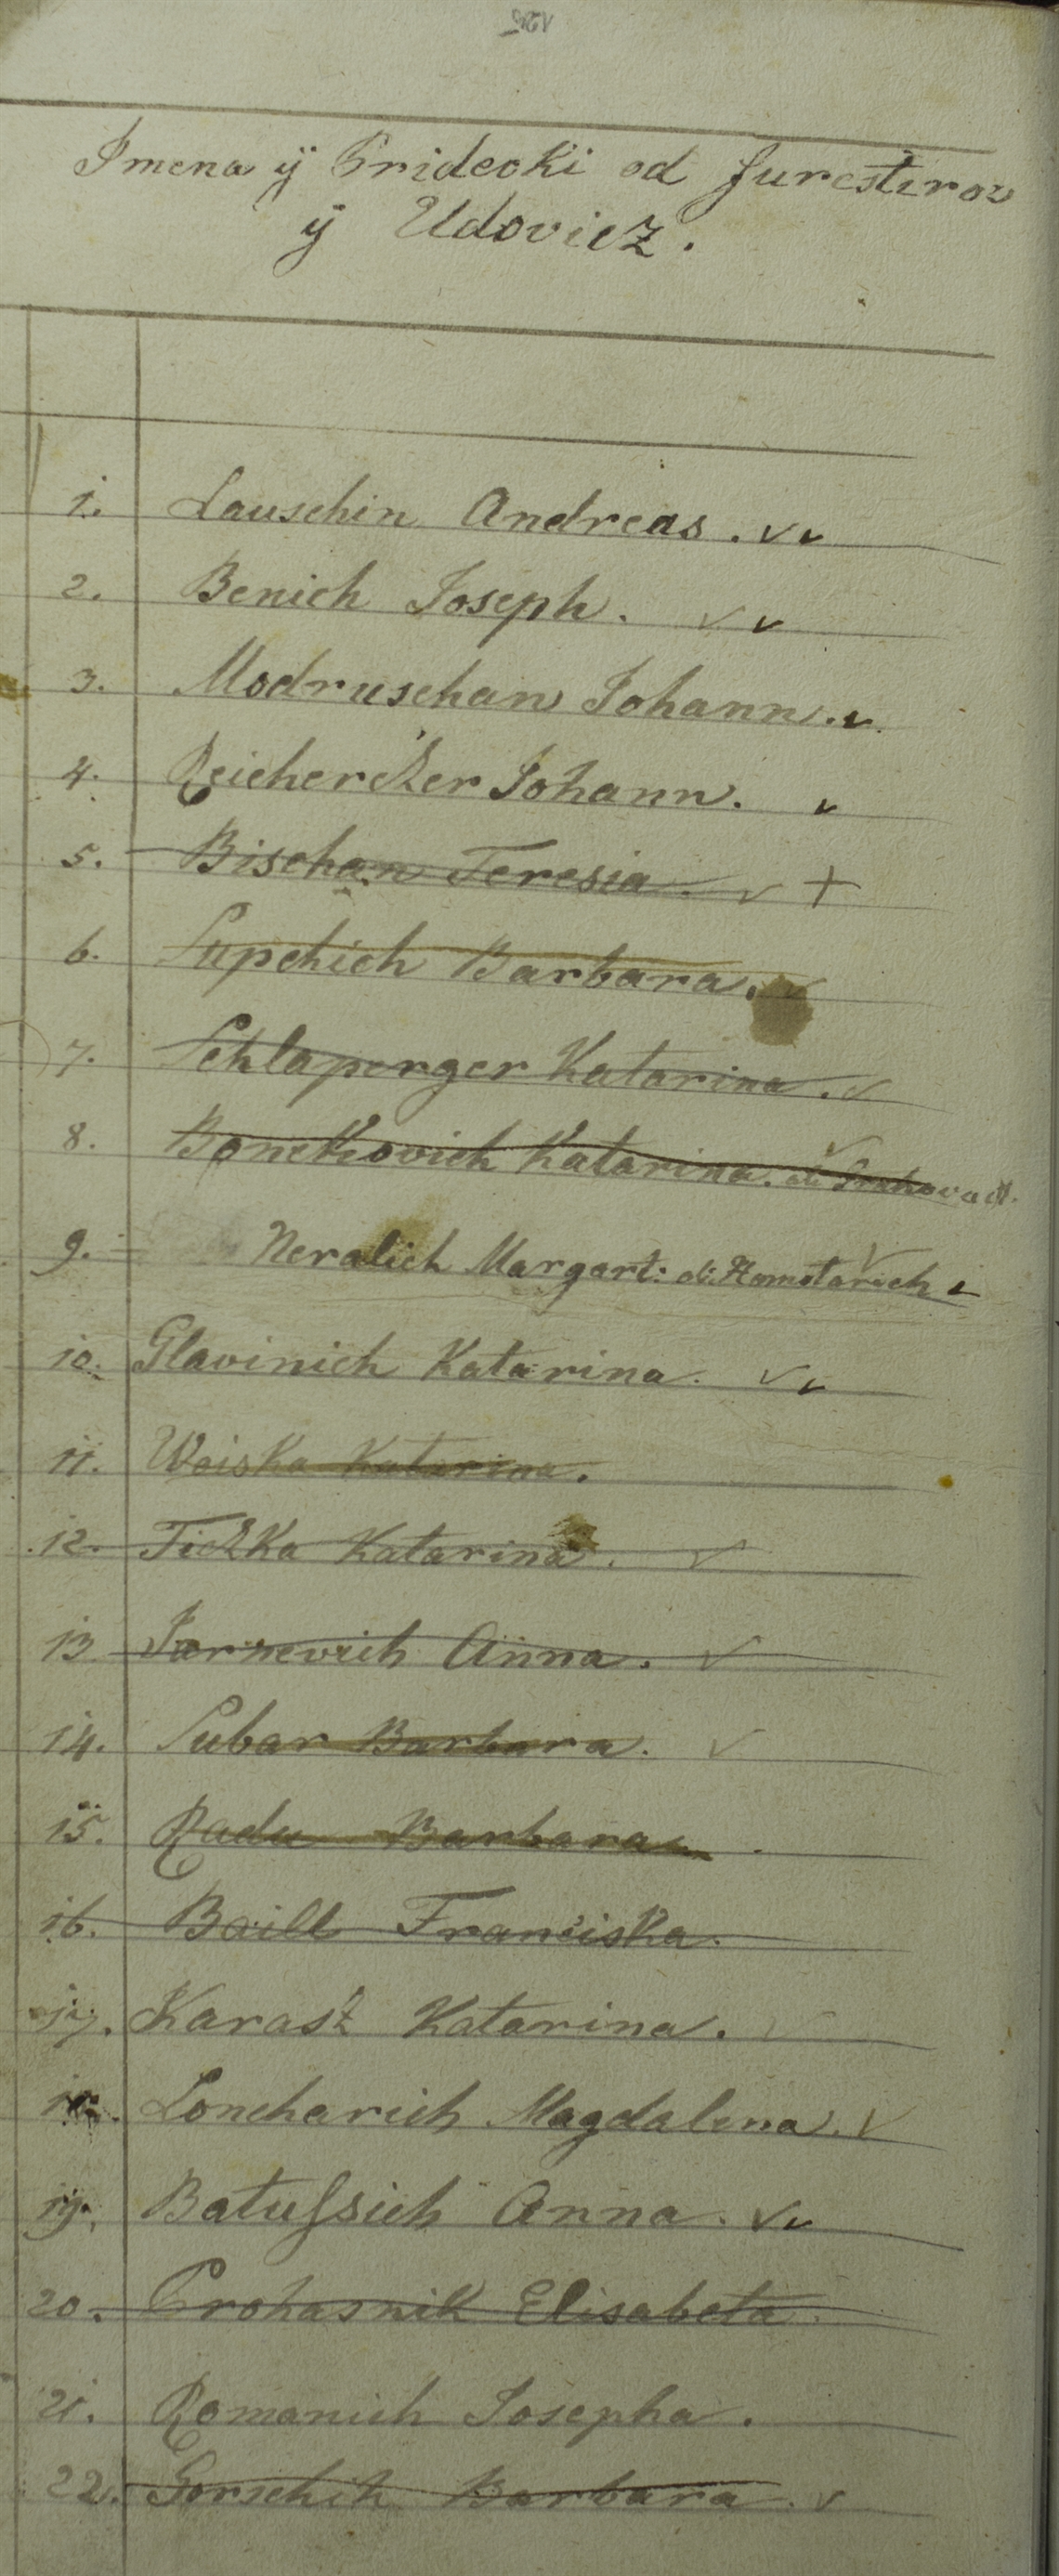 125
Imena ÿ Pridevki od Furesterov
ÿ Udovicz.
1. Lauschin Andreas.
2. Benich Joseph.
3. Modruschan Johann.
4. Reicherczer Johann.
5. Bischan Teresia.
6. Supchich Barbara.
7. Schlaperger Katarina.
8. Bonetkovich Katarina.
9. Neralich Margart: Homotarich
10. Glavinich Katarina.
11. Woiska Katarina.
12. Ticzka Katarina.
13. Jarnevich Anna.
14. Subar Barbara.
15. Radu Barbara
16. Baill Franciska.
17. Karasz Katarina.
18. Loncharich Magdalena.
19. Batuſsich Anna.
20. Prohasnik Elisabeta.
21. Romanich Josepha.
22. Gorschih Barbara.